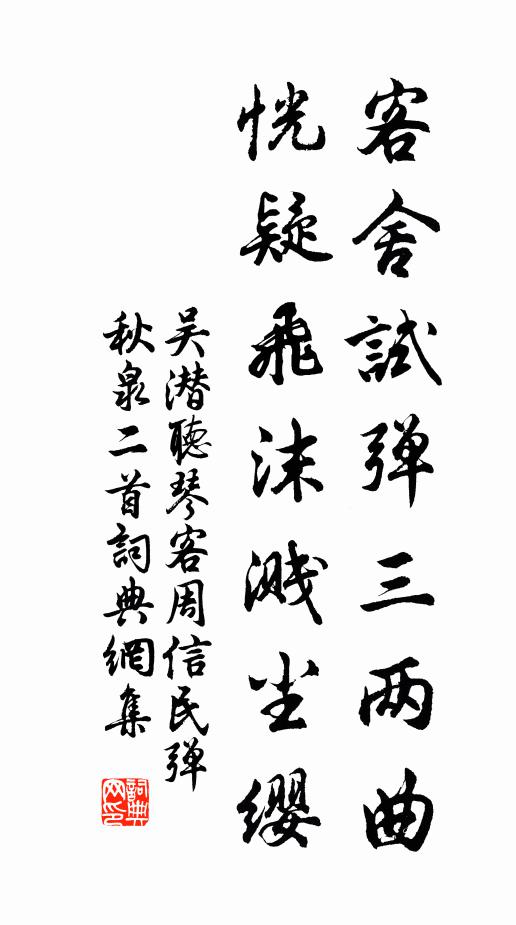 客舍試弹三两曲
恍疑飛沫溅尘缨
吴潜聽琴客周信民弹
秋泉二首詞典網集
詞典
网印